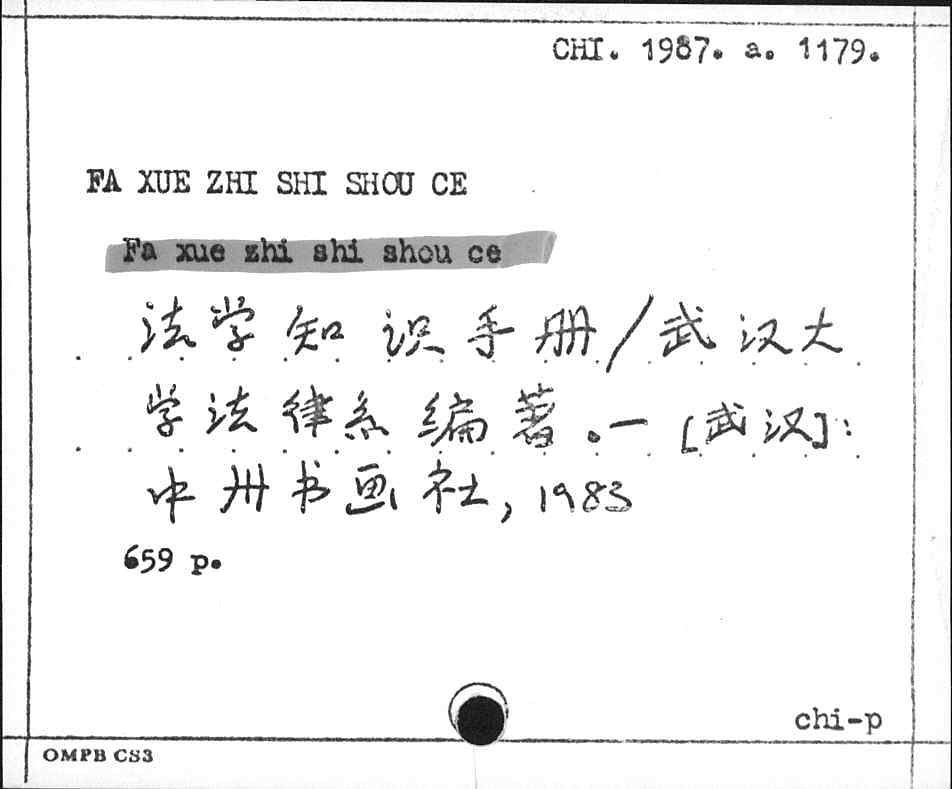 CHI. 1987. a. 1179.
FA XUE ZHI SHI SHOU CE
Fa xue zhi shi shou ce
法学知识手册/武汉大
学法律系编著.—[武汉]:
中州书画社, 1983
659 p.
chi-p
OMPB CS3